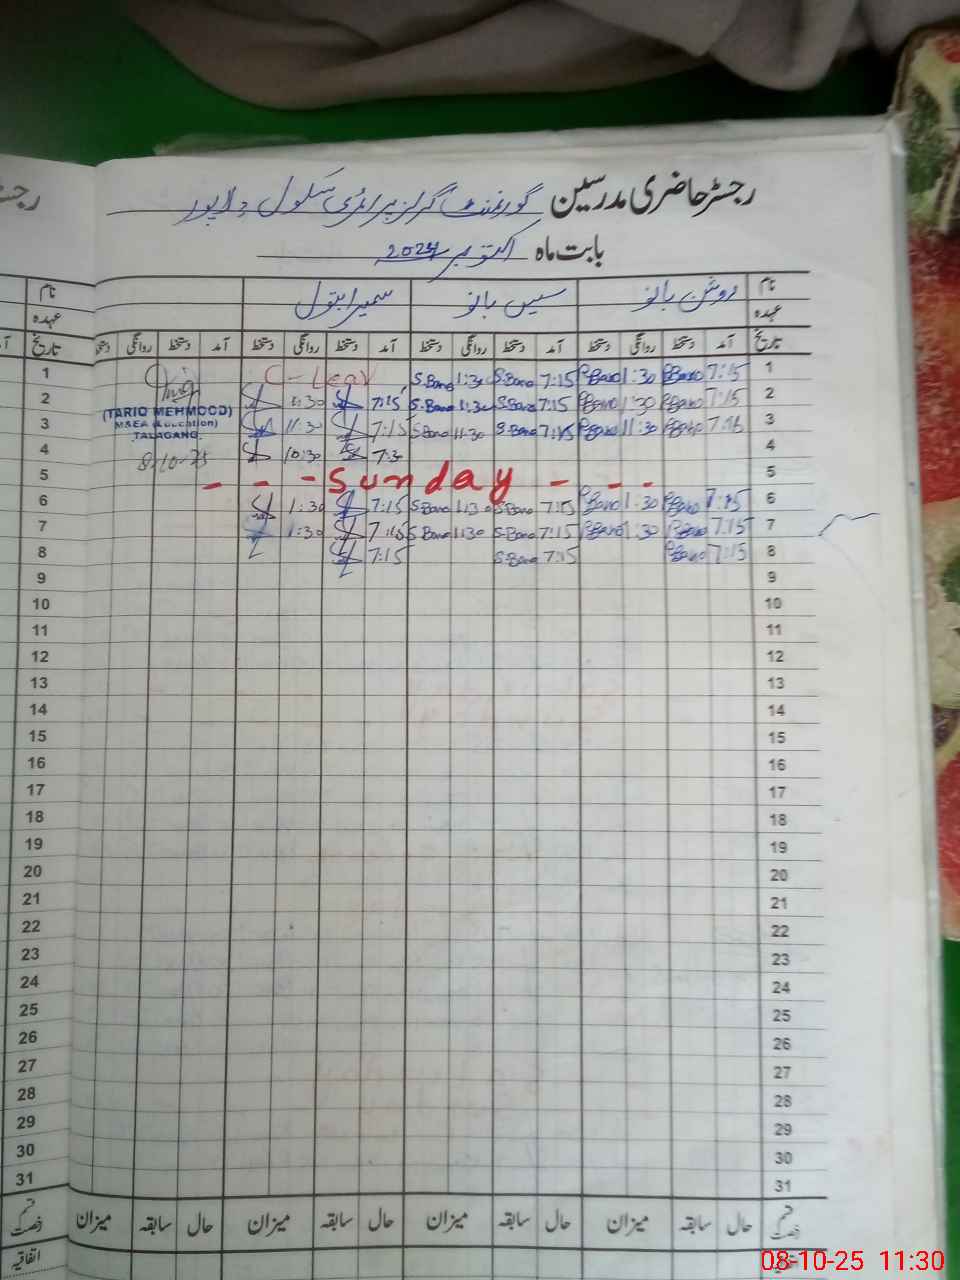 رجسٹر حاضری مدرسین گورنمنٹ گرلز پرائمری سکول دلاپور
بابت ماہ اکتوبر
نام روشن بانو بانو سمیرا بتول نام
عہدہ عہدہ
تاریخ آمد دستخط روانگی دستخط آمد دستخط روانگی دستخط آمد دستخط روانگی دستخط آمد دستخط روانگی دستخط تاریخ
1 C-Leav S.Bano 1:30 S.Bano 7:15 1:30 7:15 1
2 1:30 7:15 S.Bano 1:30 S.Bano 7:15 1:30 7:15 2
(TARIQ MEHMOOD)
MSEA (Education)
TALAGANG
8-10-25
3 11:30 7:15 S.Bano 11:30 S.Bano 7:15 11:30 7:15 3
4 10:30 7:30 4
5 - - - Sunday - - - 5
6 1:30 7:15 S.Bano 1:30 S.Bano 7:15 1:30 7:15 6
7 1:30 7:15 S.Bano 1:30 S.Bano 7:15 1:30 7:15 7
8 7:15 S.Bano 7:15 7:15 8
9 9
10 10
11 11
12 12
13 13
14 14
15 15
16 16
17 17
18 18
19 19
20 20
21 21
22 22
23 23
24 24
25 25
26 26
27 27
28 28
29 29
30 30
31 31
قسم رخصت حال سابقہ میزان حال سابقہ میزان حال سابقہ میزان قسم رخصت
اتفاقیہ
08-10-25 11:30